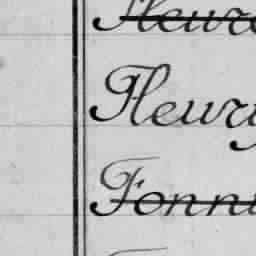 Fleure
Fleury
Fonni